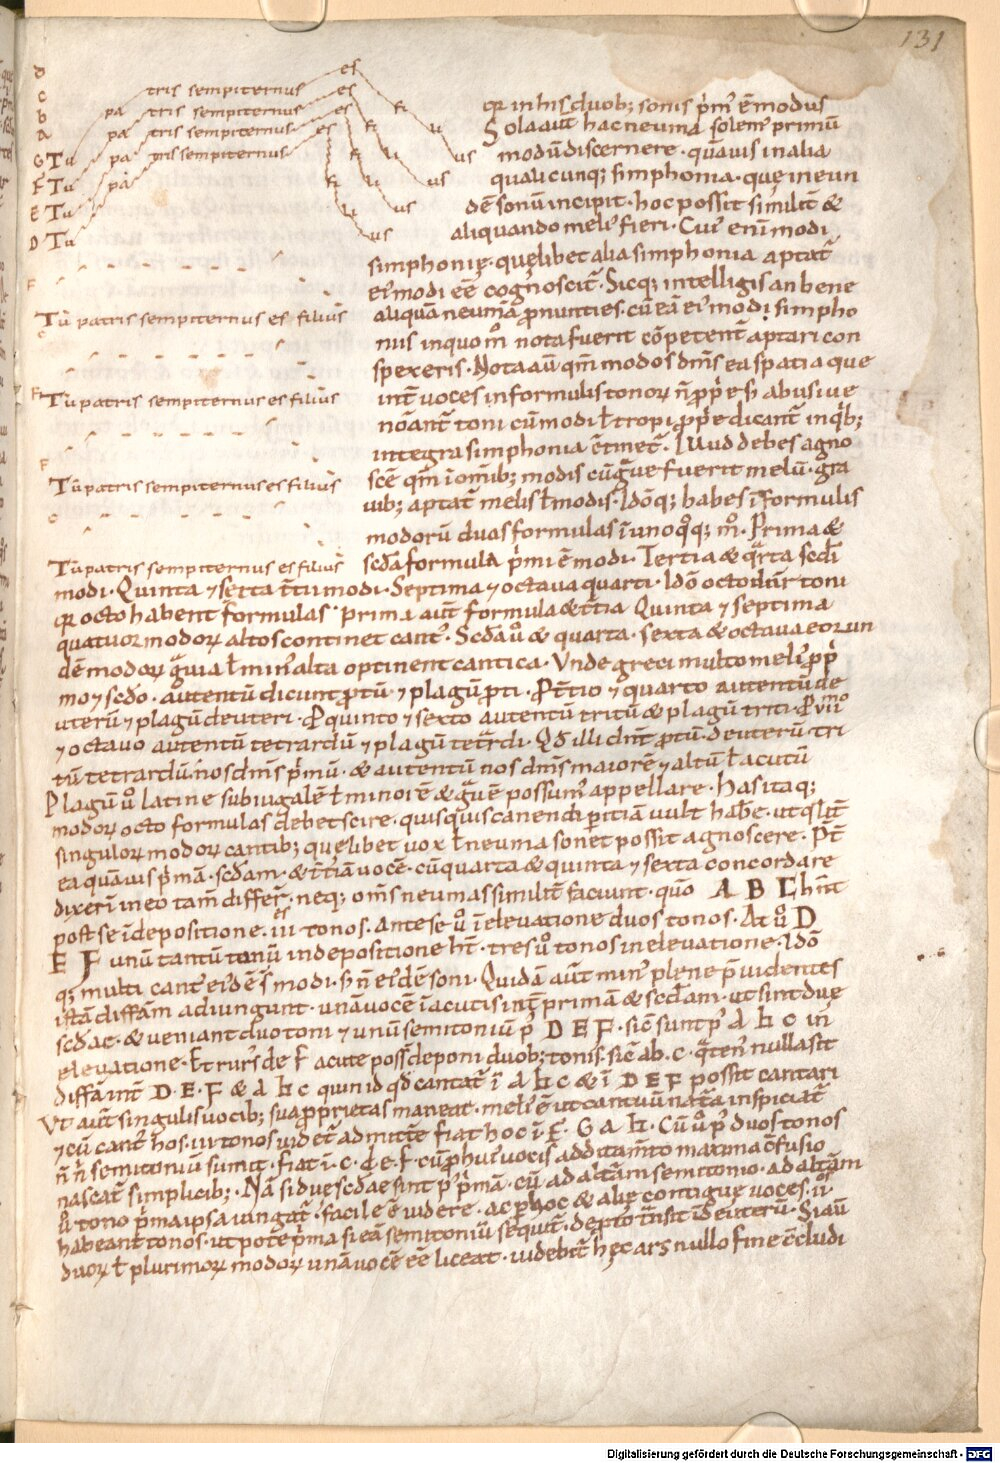 131
d
c
b
a
G Tu pa tris sempiternus es fi li us
F Tu pa tris sempiternus es fi li us
E Tu pa tris sempiternus es fi li us
D Tu pa tris sempiternus es fi li us
F
Tu patris sempiternus es filius
C
F Tu patris sempiternus es filius
F
Tu patris sempiternus es filius
C
Tu patris sempiternus es filius
qr in his duob; sonis pm' ē modus
Sola aut hac neuma solem' primū
modū discernere · quāuis in alia
qualicunq; simphonia · quę in eun
dē sonū incipit · hoc possit similit̄ &
aliquando meli' fieri · Cui' enī modi
simphonię · quęlibet alia simphonia aptat̄
ei' modi eē cognoscit̄ · Sicq; intelligis an bene
aliquā neumā pronunties · cū eā ei' modi simpho
nus inquo m̊ nota fuerit cōpetent̄ aptari con
spexeris · Nota aū qm̄ modos dm̄s ea spatia que
int̄ uoces in formulis tonoꝝ n̄ ppe s; abusiue
nōant̄ toni cū modi ł tropi ppe dicant̄ inqb;
integra simphonia ētinet̄ · Illud debes agno
scē qm̄ ī omīb; modis cū gue fuerit melū · gra
uib; aptat̄ melis ł modis · Idōq; habes ī formulis
modorū duas formulas ī unoqq; m̊ · Prima &
scđa formula pmi ē modi · Tertia & qrta scđi
modi · Quinta ⁊ sexta t̄tii modi · Septima ⁊ octaua quarti · Idō octo dnr̄ toni
qr octo habent formulas · prima aut̄ formula & t̄tia Quinta ⁊ septima
quatuor modoꝝ altos continet cant' · Scđa u̇ & quarta · sexta & octaua eorun
dē modoꝝ guia ł min' alta optinent cantica · Vnde greci multo meli' p p
mo ⁊ scđo · autentū dicunt ptū · ⁊ plagū pti · P t̄tio ⁊ quarto autentū de
uterū ⁊ plagū deuteri · P quinto ⁊ sexto autentū tritū & plagū triti · P viiᵐᵒ
⁊ octauo autentū tetrardū ⁊ plagū tetrdi · Qđ illi dnt ptū · deuterū · tri
tū · tetrardū · nos dm̄s pmū · & autentū nos dm̄s maiorē ⁊ altū ł acutū
Plagū u̇ latine subiugalē ł minorē & guē possum' appellare · Has itaq;
modoꝝ octo formulas debet scire · quisquis canendi pitiā uult habē · ut qlit̄
singuloꝝ modoꝝ cantib; quęlibet uox ł neuma sonet possit agnoscere · Pt̄
ea quāuis pmā · scđam · & t̄tiā uocē · cū quarta & quinta ⁊ sexta concordare
dixerī in eo tam̄ differ̄ · neq; om̄s neumas similit̄ faciunt · quō A B C hn̄t
post se ī depositione · iii · tonos · Ante se u̇ ī eleuatione duos tonos · At u̇ D
E F unū tantū tonū in depositione hn̄t · tres u̇ tonos in eleuatione · Idō
q; multi cant' ei'dē s̄t modi · s; n̄ ei'dē soni · Quidā aut̄ min' plene puidentes
istā diffām adiungunt · unā uocē ī acutis int̄ primā & scđam · ut sint due
scđae · & ueniant duo toni ⁊ unū semitoniū p D E F · sic̄ sunt p a b c in
eleuatione · Et rurs' de f acute poss̄ deponi duob; tonis · sic̄ ab · c · qten' nulla sit
diffā int̄ D · E · F & a b c quin id qđ cantat̄ ī a b c & ī D E F possit cantari
Vt aut̄ singulis uocib; sua pprietas maneat · meli' ē ut cantuū natā inspiciat̄
⁊ cū cant' hos · iii · tonos uidet̄ admitt̄e fiat hoc ī F · G a b · Cū u̇ p duos tonos
n̄ n̄ semitoniū sumit · fiat ī · c · d · e · f · cū phui' uocis additam̄to maxima cfusio
nascat̄ simplicib; · Nā si due scđae sint p pmā · cū ad altam semitonio · ad altam
u̇ tono pma ipsa iungat̄ · facile ē uidere · ac phoc & alię contigue uoces · ii ·
habeant tonos · ut pote pma si eā semitoniū sequit̄ · de pto t̄nsit ī deuterū · Si aū
duoꝝ ł plurimoꝝ modoꝝ unā uocē eē liceat · uidebit̄ hęc ars nullo fine c̄cludi
Digitalisierung gefördert durch die Deutsche Forschungsgemeinschaft - DFG